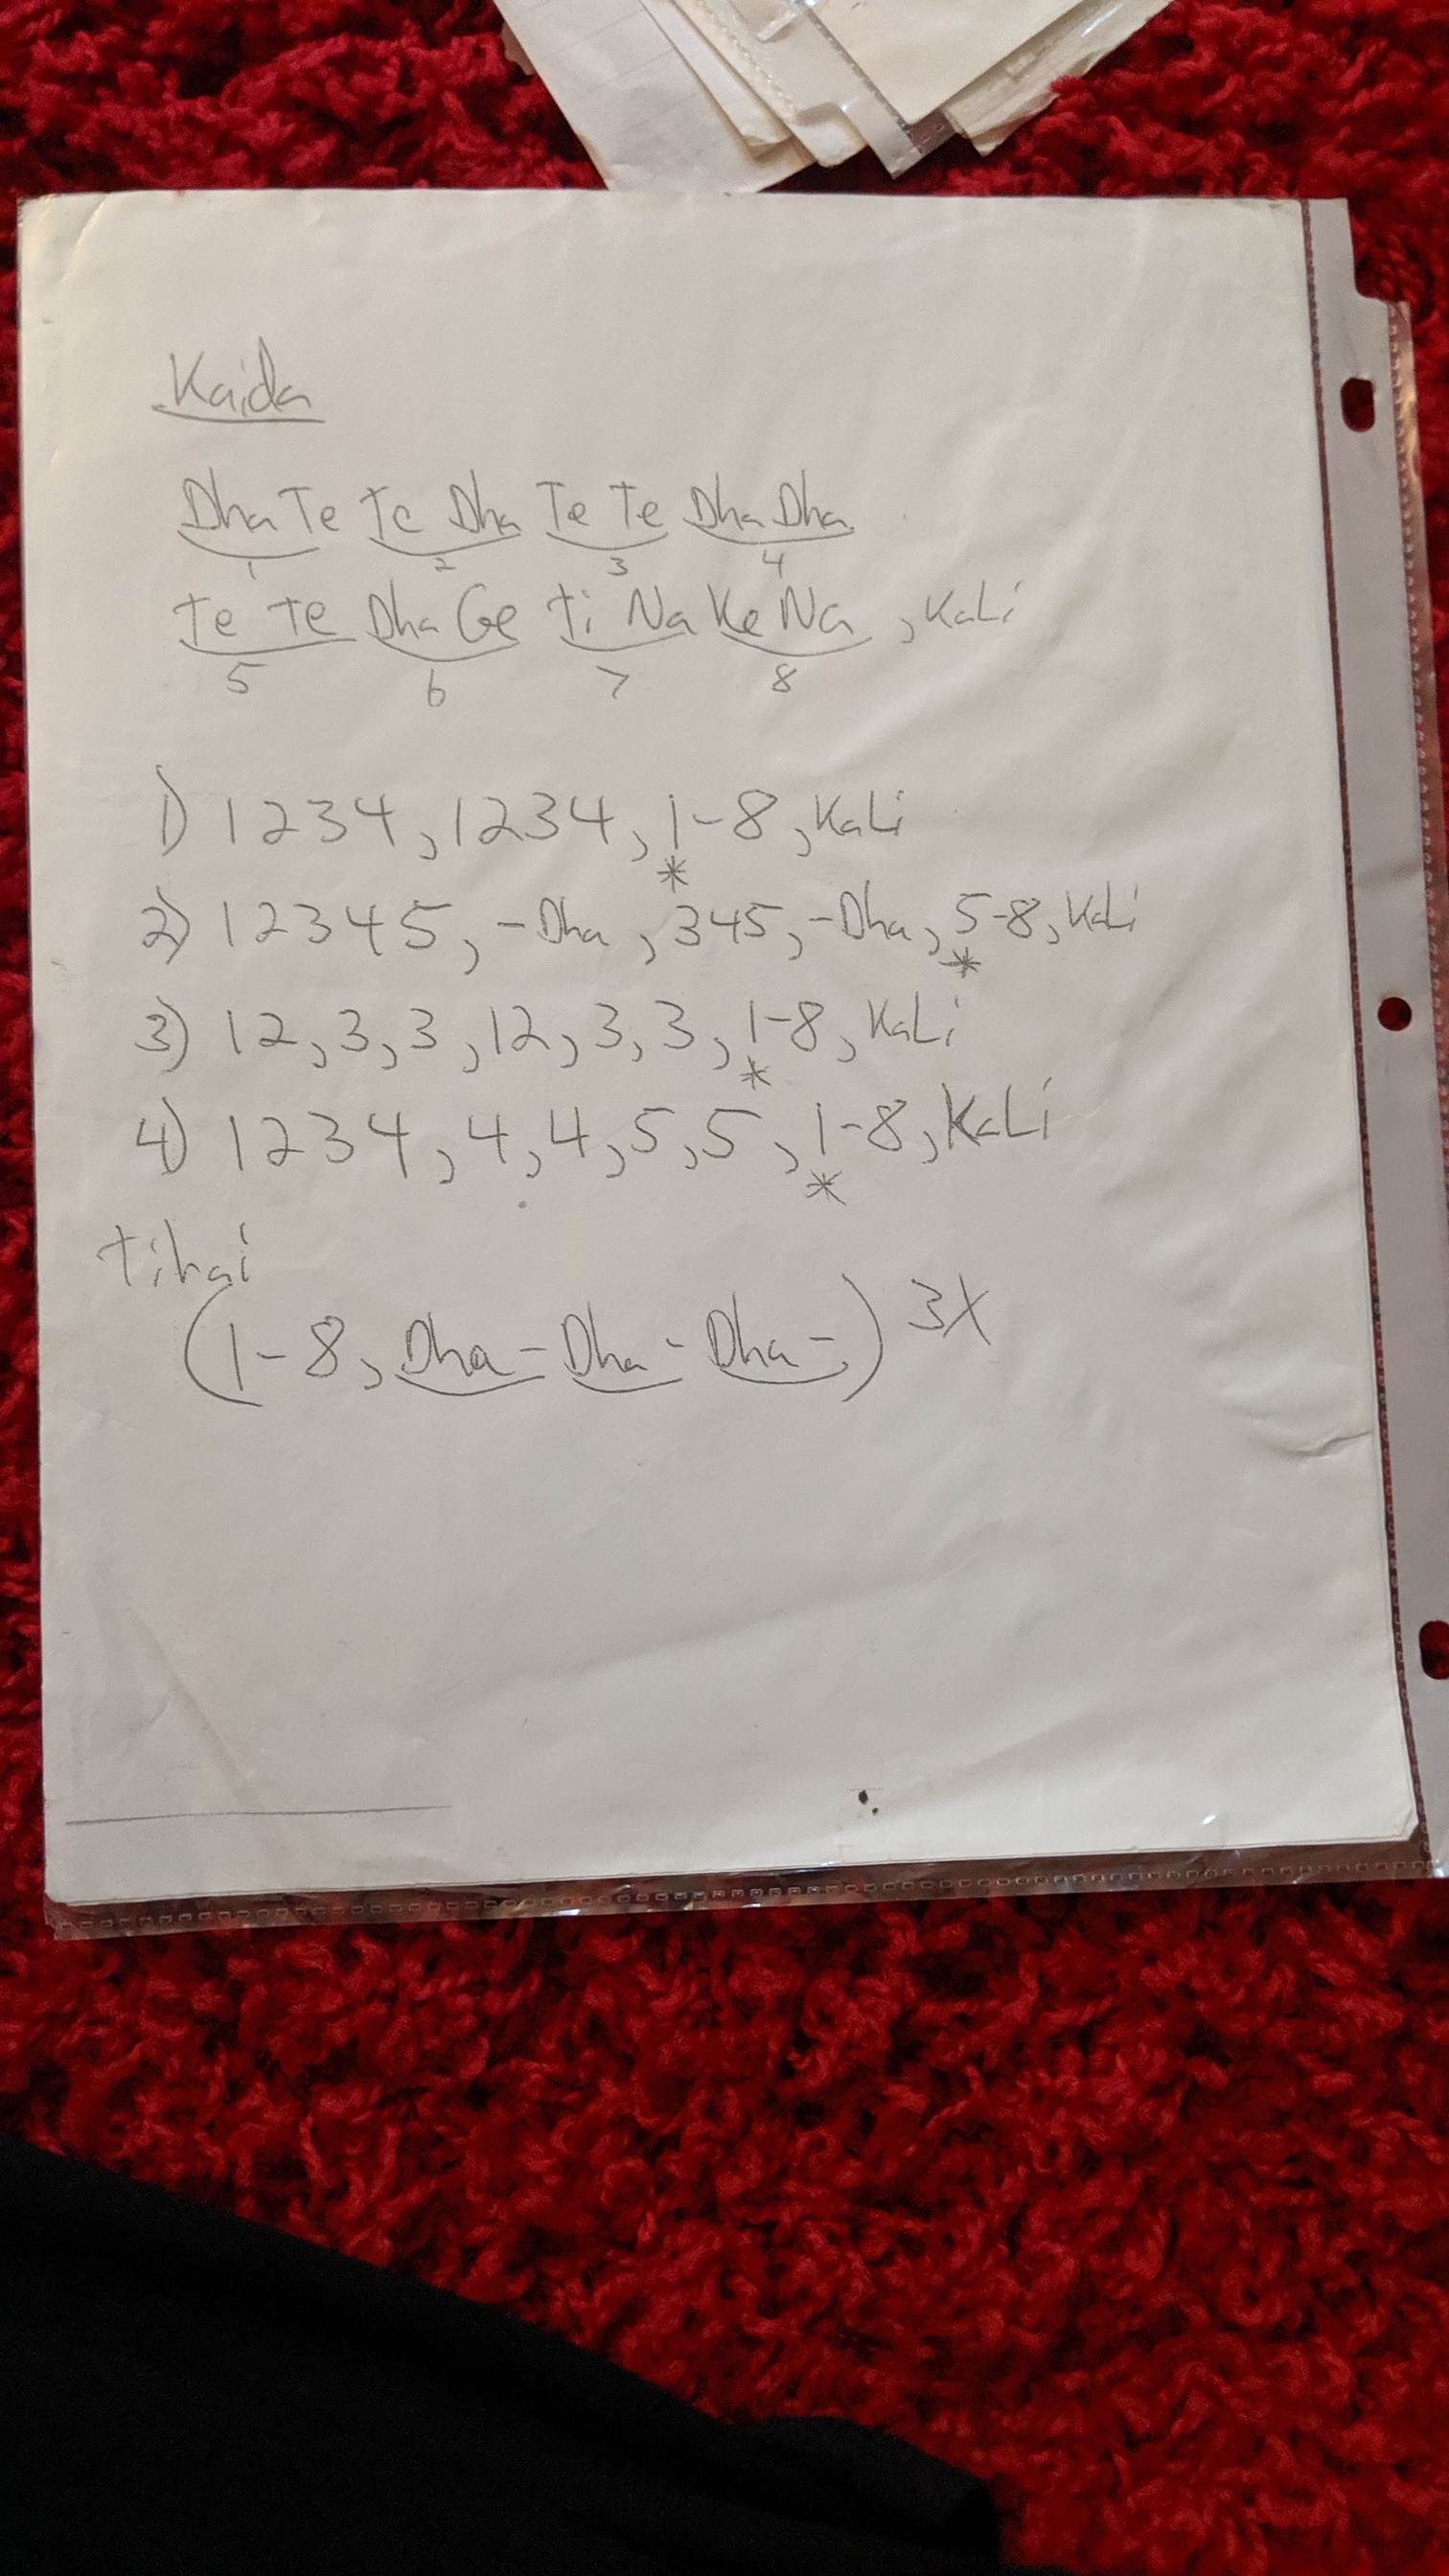 Kaida
Dha Te Te Dha Te Te Dha Dha
1 2 3 4
Te Te Dha Ge ti Na Ke Na , KaLi
5 6 7 8
1) 1234, 1234, 1-8, KaLi
*
2) 12345, -Dha, 345, -Dha, 5-8, KaLi
*
3) 12, 3, 3, 12, 3, 3, 1-8, KaLi
*
4) 1234, 4, 4, 5, 5, 1-8, KaLi
*
tihai
(1-8, Dha - Dha - Dha -,) 3X